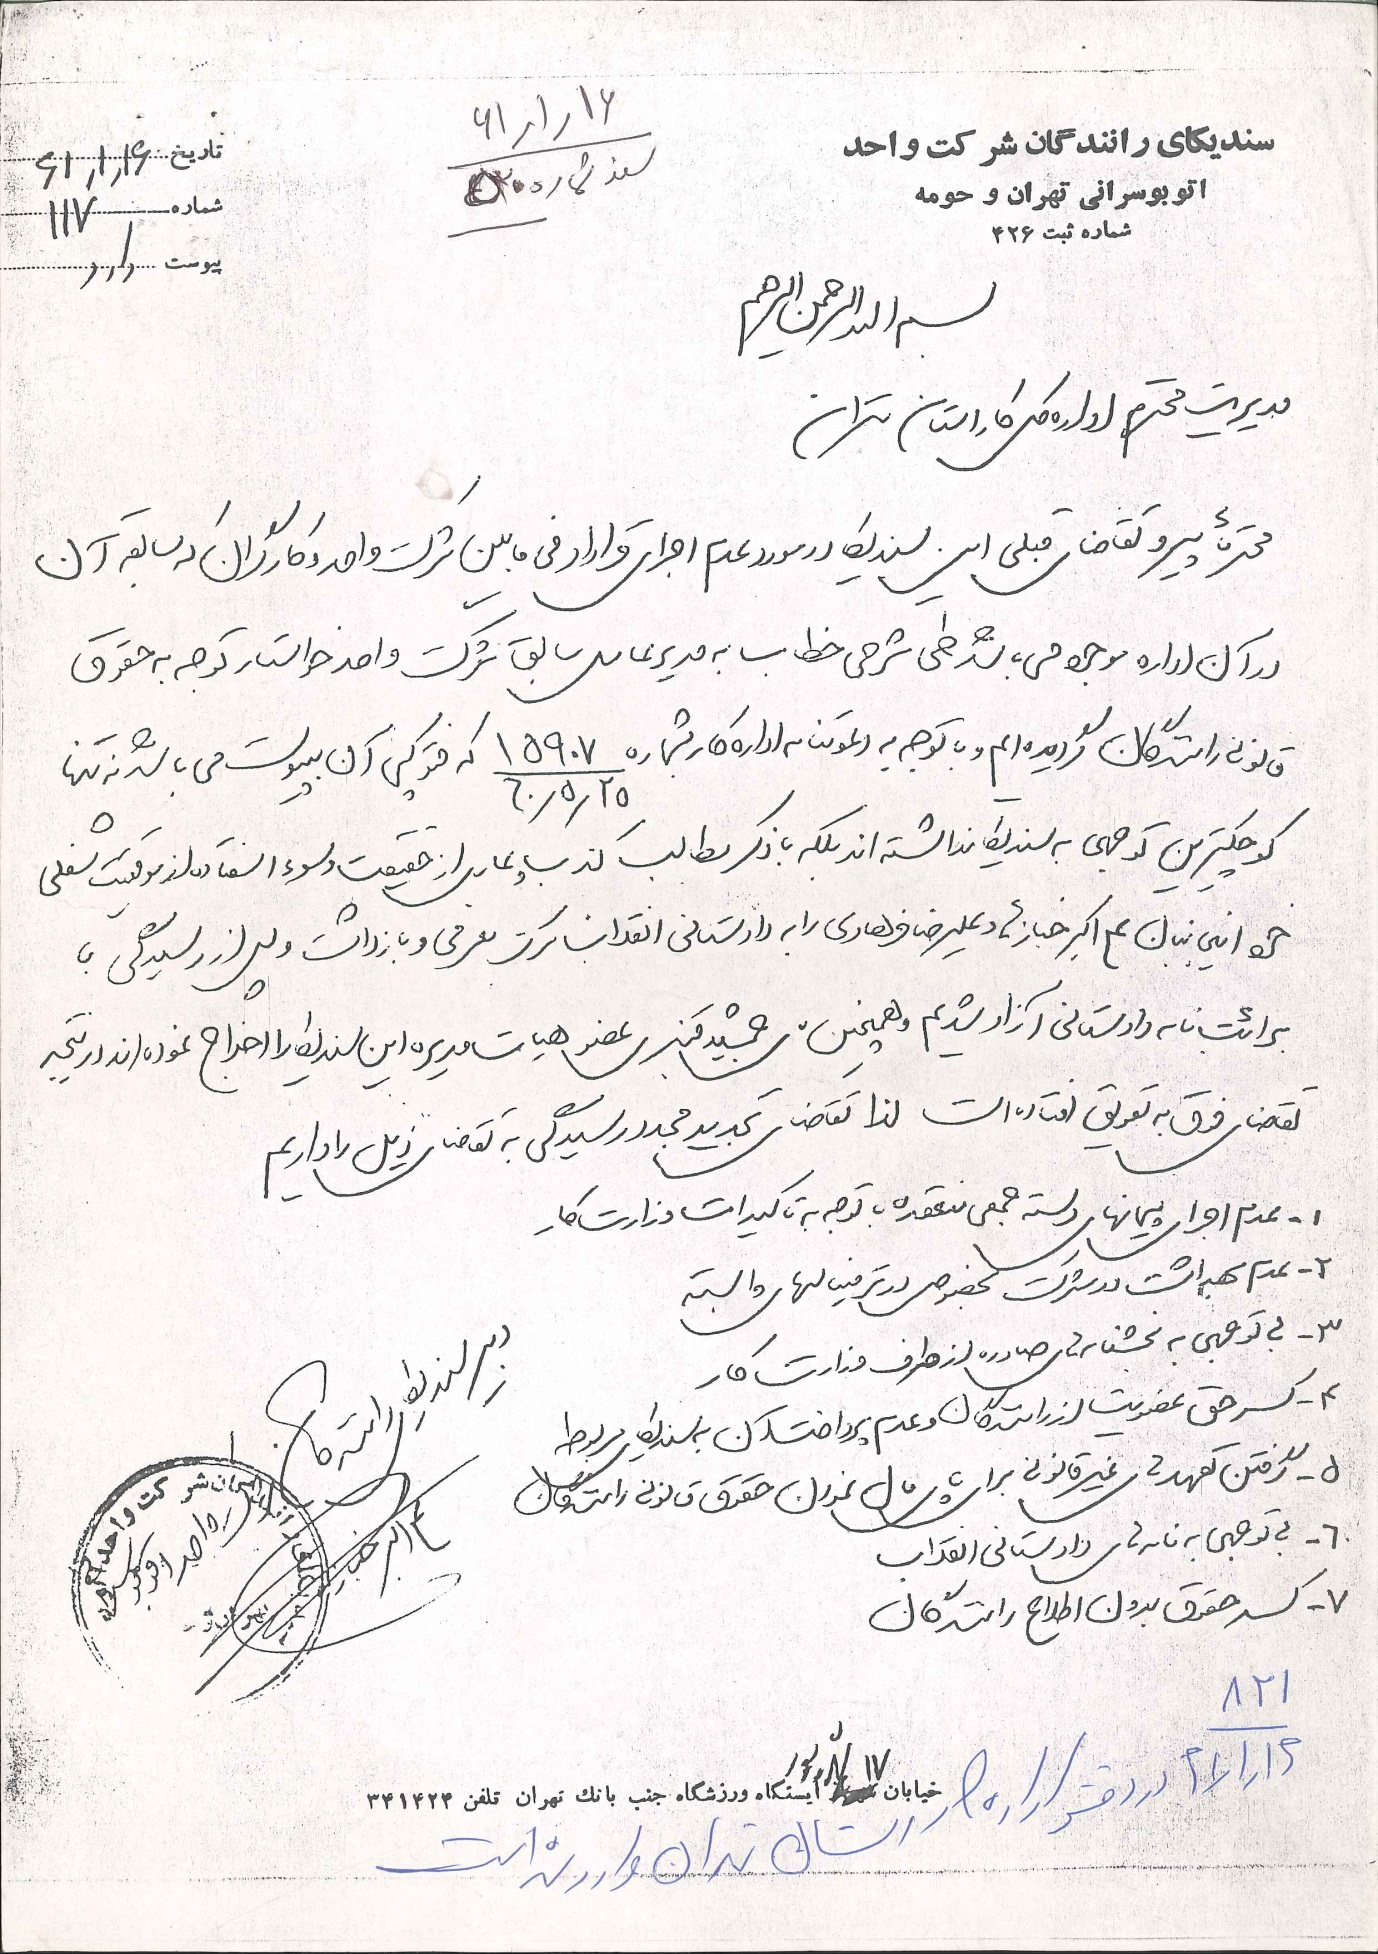 سندیکای رانندگان شرکت واحد
اتوبوسرانی تهران و حومه
شماره ثبت ۴۲۶
۶۱/۱/۱۶
سند شماره
تاریخ ۶۱/۱/۱۶
شماره ۱۱۷
پیوست دارد
بسم الله الرحمن الرحیم
مدیریت محترم اداره کل کار استان تهران
محترماً پیرو تقاضای قبلی این سندیکا در مورد عدم اجرای قرارداد فی مابین شرکت واحد و کارگران که سابقه آن
در آن اداره موجود می باشد طی شرحی خطاب به مدیرعامل سابق شرکت واحد خواستار توجه به حقوق
قانونی رانندگان گردیده ایم و با توجه به دعوتنامه اداره کار بشماره ۱۵۹۰۷ که فتوکپی آن پیوست می باشد نه تنها
۶۰/۵/۲۵
کوچکترین توجهی به سندیکا نداشته اند بلکه با ذکر مطالب کذب و عاری از حقیقت و سوء استفاده از موقعیت شغلی
خود اینجانبان علی اکبر خبازی و علیرضا فرهادی را به دادستانی انقلاب مرکز معرفی و بازداشت و پس از رسیدگی با
برائت نامه دادستانی آزاد شدیم و همچنین جمشید عضو هیات مدیره این سندیکا را اخراج نموده اند در نتیجه
تقاضای فوق به تعویق افتاده است لذا تقاضای تجدید مجدد رسیدگی به تقاضای ذیل را داریم
۱- عدم اجرای پیمانهای دسته جمعی منعقده با توجه به تاکیدات وزارت کار
۲- عدم بهداشت در شرکت بخصوص در ترمینالهای وابسته
۳- بی توجهی به بخشنامه های صادره از طرف وزارت کار
۴- کسر حق عضویت از رانندگان و عدم پرداخت آن به سندیکای مربوطه
۵- گرفتن تعهدهای غیر قانونی برای پای مال نمودن حقوق قانونی رانندگان
۶- بی توجهی به نامه های دادستانی انقلاب
۷- کسر حقوق بدون اطلاع رانندگان
دبیر سندیکای رانندگان
شرکت واحد
۸۲۱
در دفتر اداره کار استان تهران وارد شده است
خیابان ۱۷ شهریور ایستگاه ورزشگاه جنب بانک تهران تلفن ۳۴۱۴۲۴